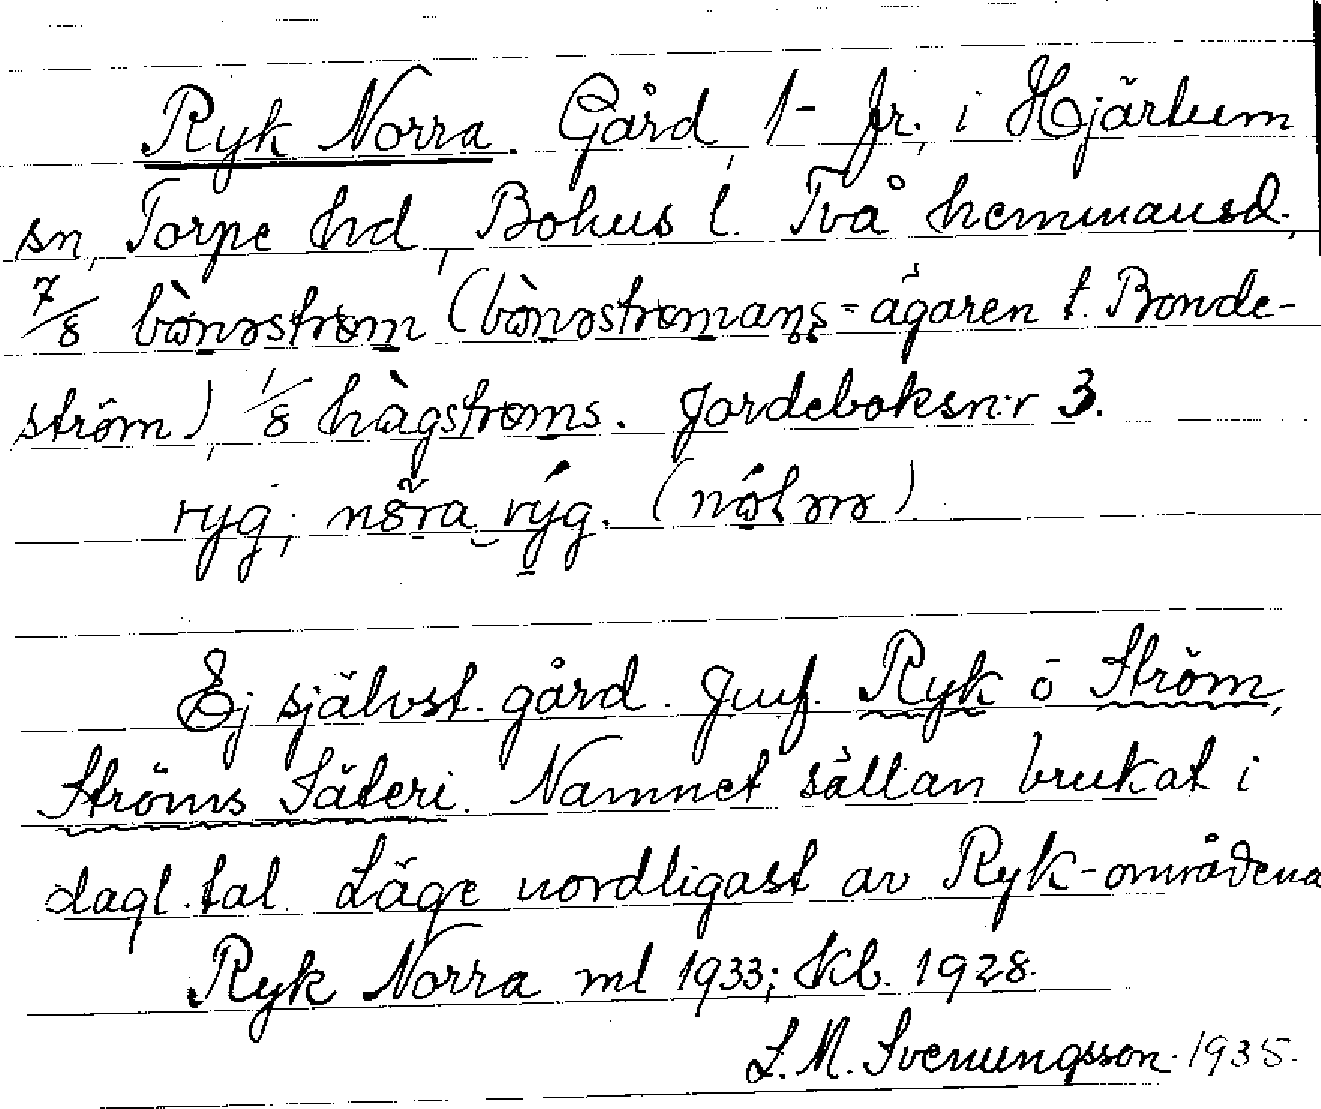 Ryk Norra. Gård, 1- fr., i Hjärtum
sn, Torpe hd, Bohus l. Två hemmansd.,
7/8 bònəstrøm (bònəstrømans-ägaren t. Bonde-
ström), 1/8 hàgstrøms. Jordeboksn:r 3.
ryg; nøra rýg. (nólərə)
Ej självst. gård. Jmf. Ryk o Ström,
Ströms Säteri. Namnet sällan brukat i
dagl. tal. Läge nordligast av Ryk-områdena
Ryk Norra ml 1933; Kb. 1928.
L. M. Svenungsson. 1935.